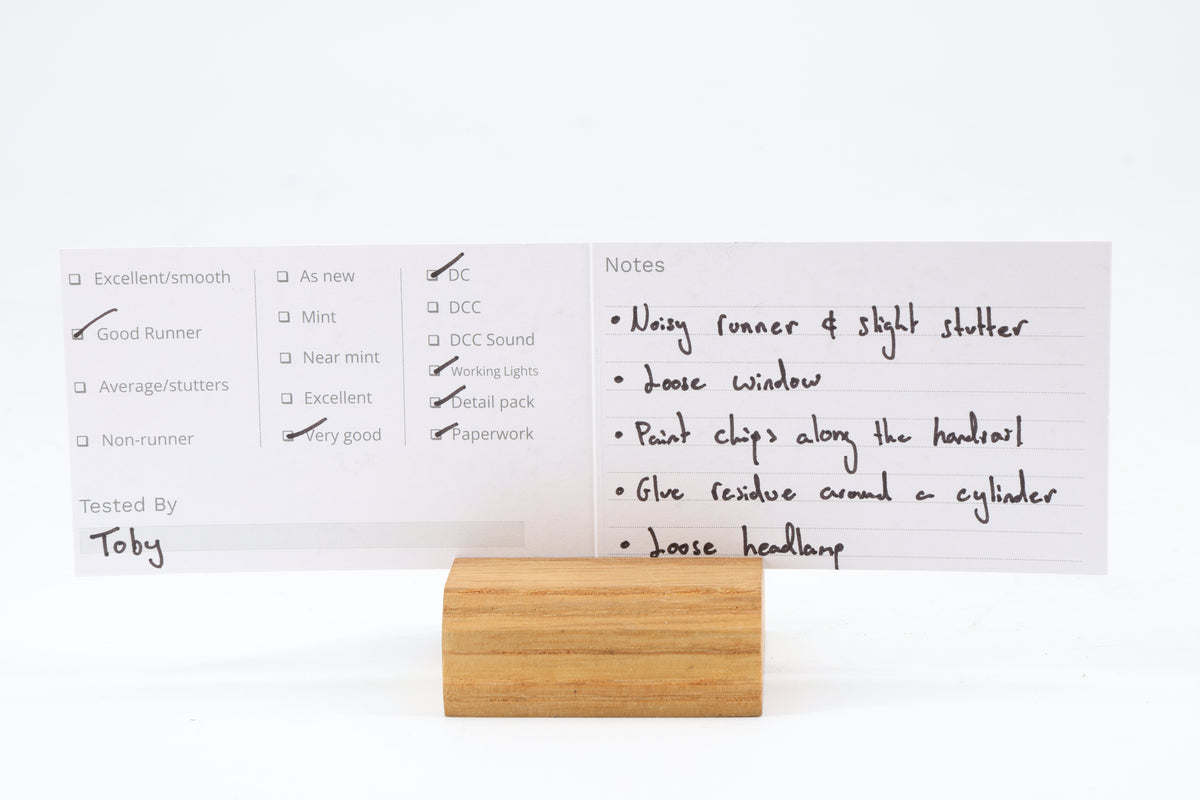 Excellent/smooth
Good Runner
Average/stutters
Non-runner
As new
Mint
Near mint
Excellent
Very good
DC
DCC
DCC Sound
Working Lights
Detail pack
Paperwork
Tested By
Toby
Notes
• Noisy runner & slight stutter
• Loose window
• Paint chips along the handrail
• Glue residue around a cylinder
• Loose headlamp